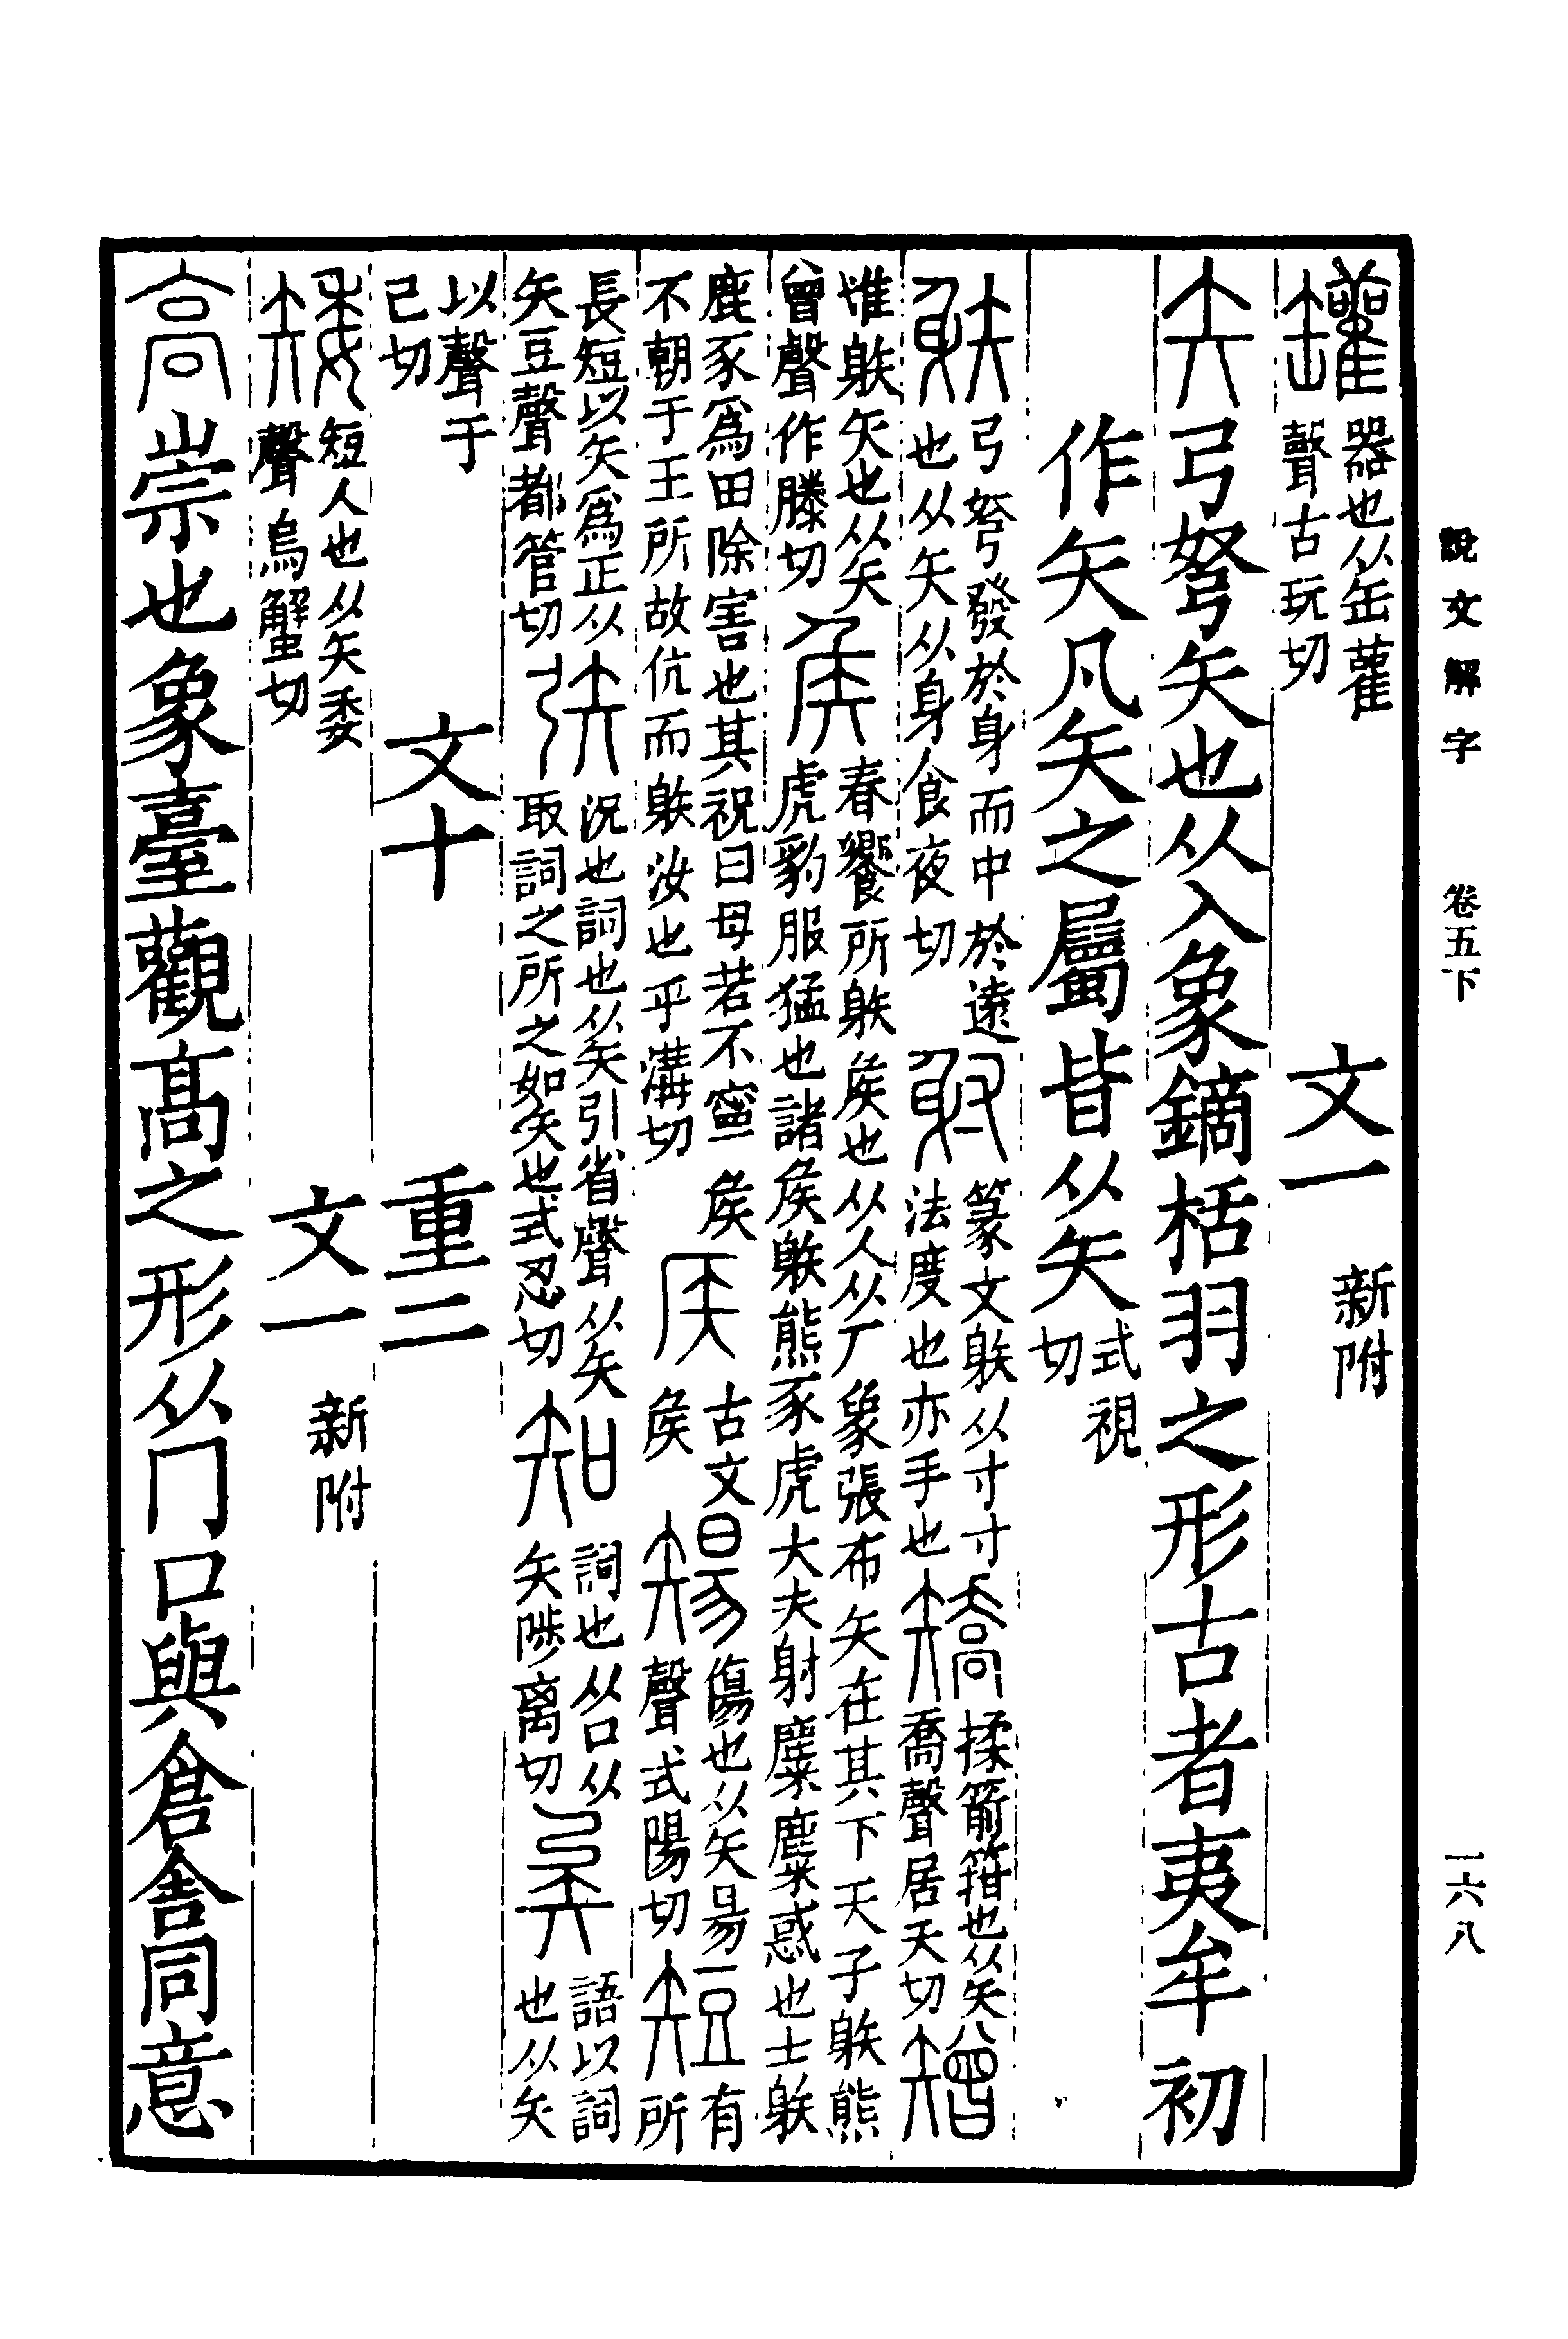 說文解字　卷五下　一六八
罐器也从缶雚聲古玩切　文一　新附
矢弓弩矢也从入象鏑栝羽之形古者夷牟初
作矢凡矢之屬皆从矢式視切
䠶弓弩發於身而中於遠也从矢从身食夜切射篆文䠶从寸寸法度也亦手也矯揉箭箝也从矢喬聲居夭切矰
惟䠶矢也从矢曾聲作滕切矦春饗所䠶矦也从人从厂象張布矢在其下天子䠶熊虎豹服猛也諸矦䠶熊豕虎大夫射麋麋惑也士䠶
鹿豕爲田除害也其祝曰母若不寧矦不朝于王所故伉而䠶汝也乎溝切𥎦古文矦𥏻傷也从矢昜聲式陽切短有所
長短以矢爲正从矢豆聲都管切矤況也詞也从矢引省聲从矢取詞之所之如矢也式忍切知詞也从口从矢陟离切矣語以詞也从矢
以聲于己切　文十　重二
矮短人也从矢委聲烏蟹切　文一　新附
高崇也象臺觀高之形从冂口與倉舍同意